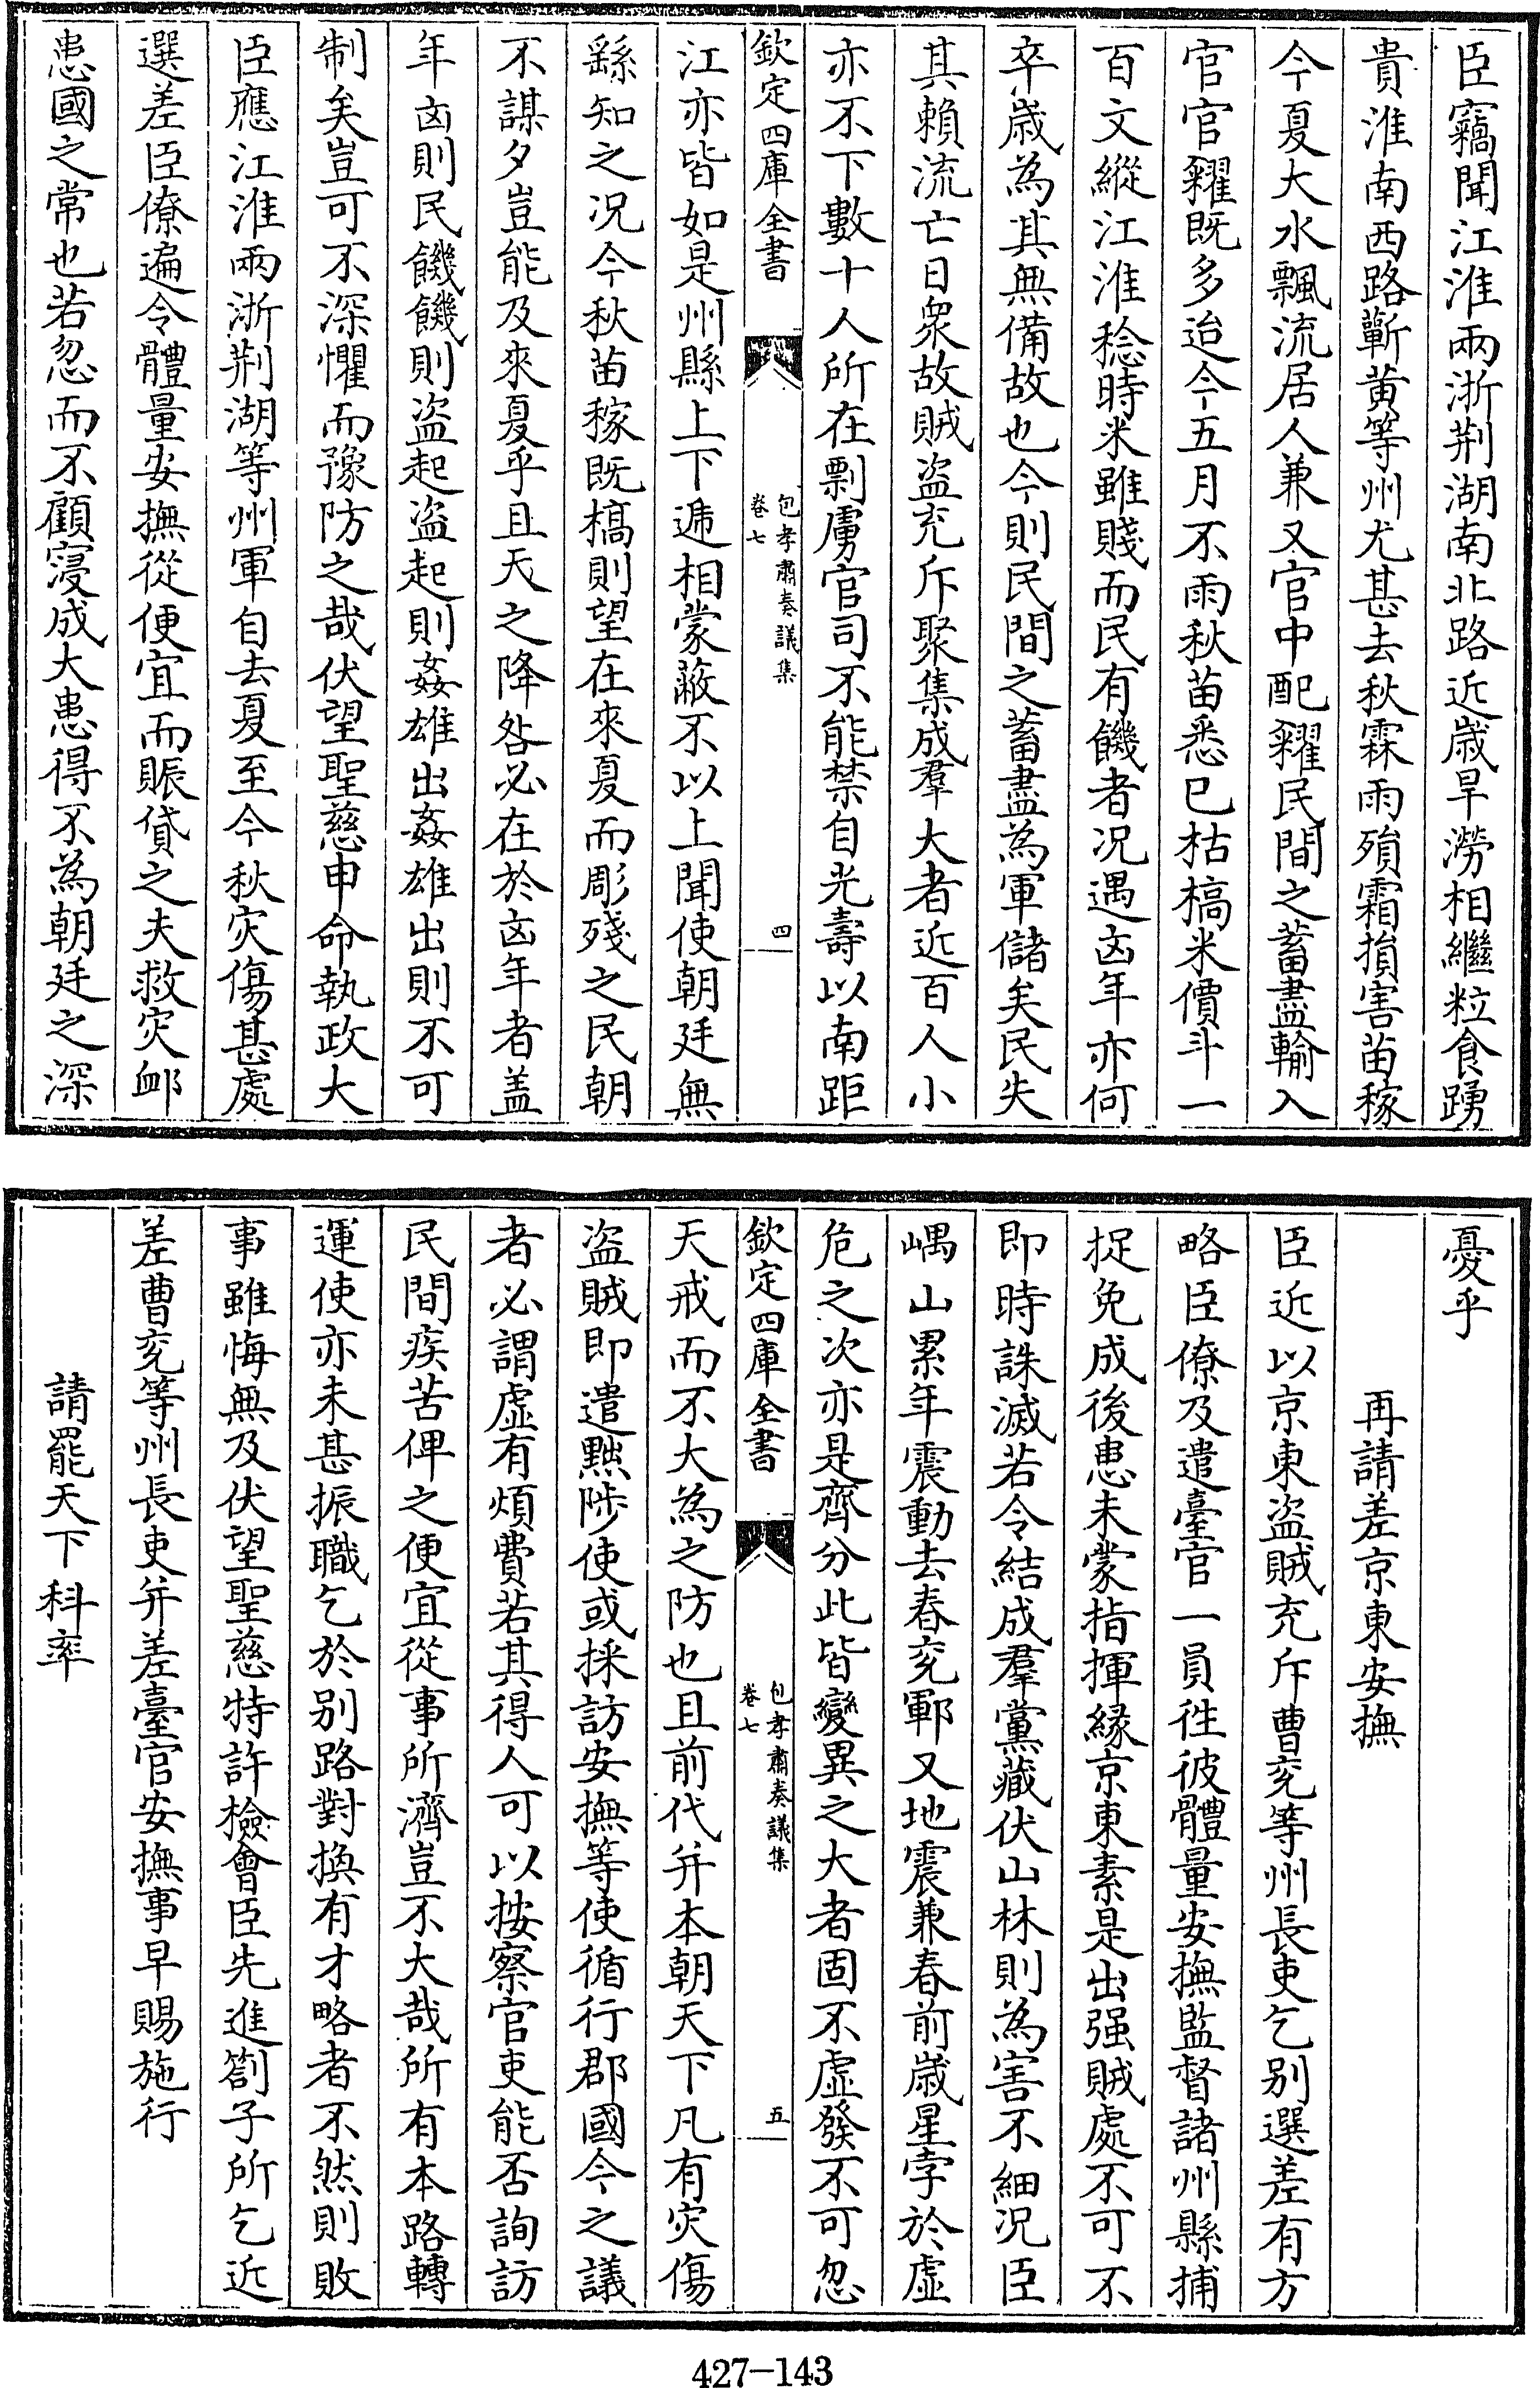 臣竊聞江淮兩浙荆湖南北路近歲旱澇相繼粒食踴
貴淮南西路蘄黄等州尤甚去秋霖雨殞霜損害苗稼
今夏大水飄流居人兼又官中配糴民間之蓄盡輸入
官官糴既多迨今五月不雨秋苗悉已枯槁米價斗一
百文縱江淮稔時米雖賤而民有饑者况遇凶年亦何
卒歲為其無備故也今則民間之蓄盡為軍儲矣民失
其賴流亡日衆故賊盗充斥聚集成羣大者近百人小
亦不下數十人所在剽虜官司不能禁自光壽以南距
欽定四庫全書
包孝肅奏議集
卷七
四
江亦皆如是州縣上下遞相蒙蔽不以上聞使朝廷無
繇知之况今秋苗稼既槁則望在來夏而彫殘之民朝
不謀夕豈能及來夏乎且天之降咎必在於凶年者盖
年凶則民饑饑則盗起盗起則姦雄出姦雄出則不可
制矣豈可不深懼而豫防之哉伏望聖慈申命執政大
臣應江淮兩浙荆湖等州軍自去夏至今秋灾傷甚處
選差臣僚遍令體量安撫從便宜而賑貸之夫救灾䘏
患國之常也若忽而不顧寖成大患得不為朝廷之深
憂乎
再請差京東安撫
臣近以京東盗賊充斥曹兖等州長吏乞别選差有方
略臣僚及遣臺官一員徃彼體量安撫監督諸州縣捕
捉免成後患未蒙指揮縁京東素是出强賊處不可不
即時誅滅若令結成羣黨藏伏山林則為害不細况臣
嵎山累年震動去春兖鄆又地震兼春前歲星孛於虚
危之次亦是齊分此皆變異之大者固不虚發不可忽
欽定四庫全書
包孝肅奏議集
卷七
五
天戒而不大為之防也且前代并本朝天下凡有灾傷
盗賊即遣黜陟使或採訪安撫等使循行郡國今之議
者必謂虚有煩費若其得人可以按察官吏能否詢訪
民間疾苦俾之便宜從事所濟豈不大哉所有本路轉
運使亦未甚振職乞於别路對換有才略者不然則敗
事雖悔無及伏望聖慈特許檢會臣先進劄子所乞近
差曹兖等州長吏并差臺官安撫事早賜施行
請罷天下科率
427-143